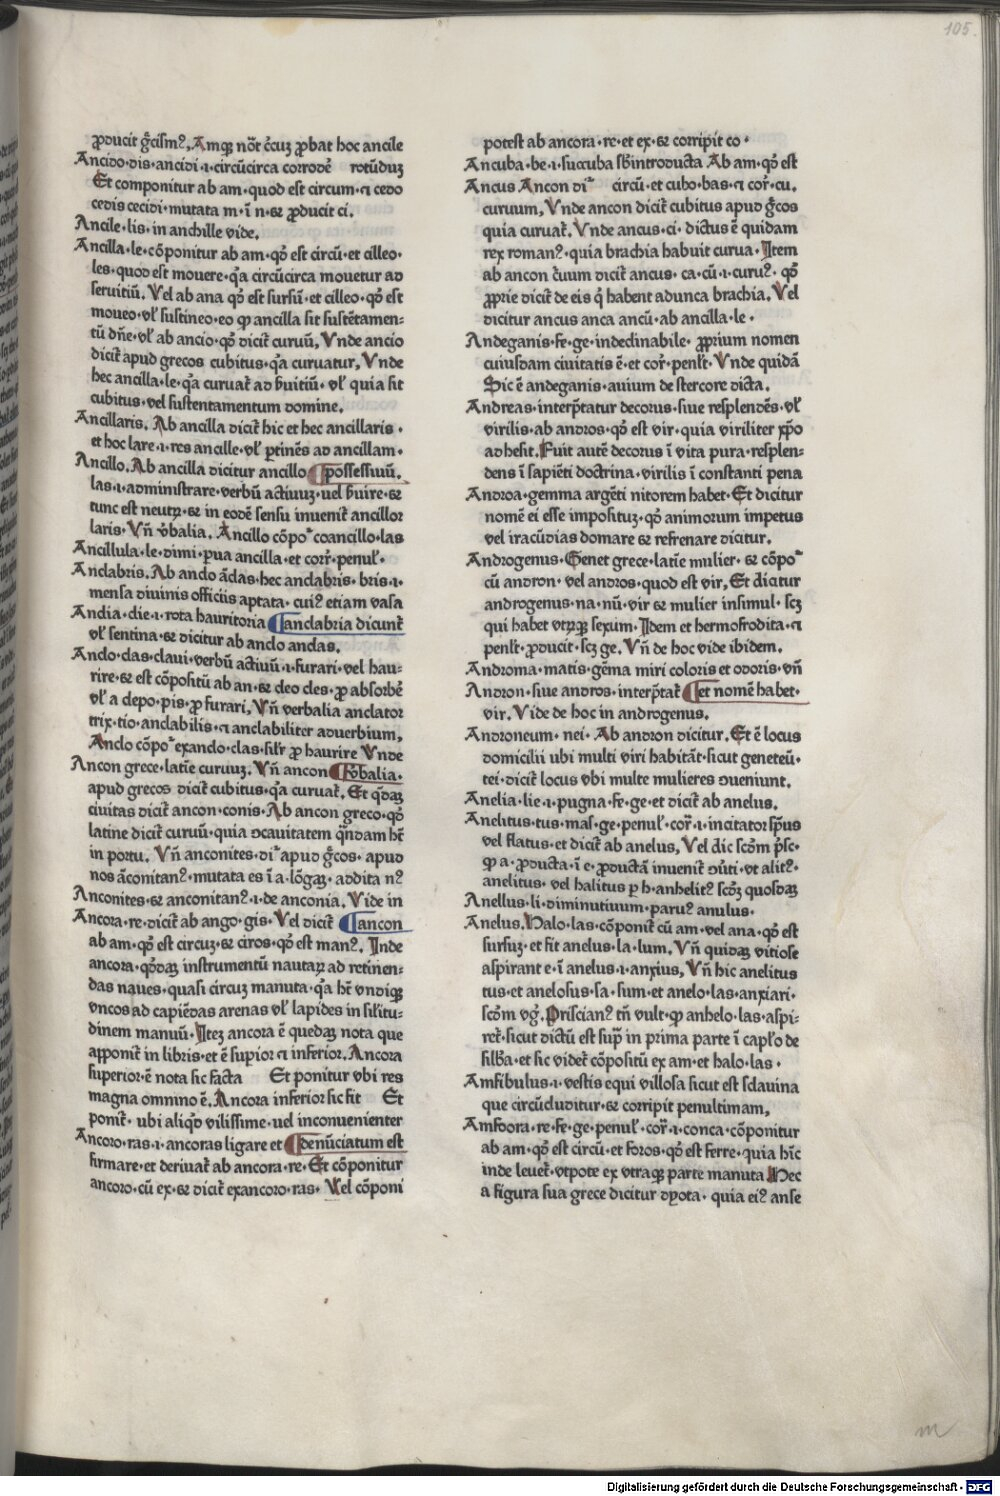 105.
ꝓducit g̃cism⁹, Amqꝫ nõt c̃cuꝫ ꝓbat hoc ancile
Ancido·dis·ancidi·i·circũcirca corrodẽ rotũduꝫ
Et componitur ab am·quod est circum·⁊ cedo
cedis cecidi·mutata m·ĩ n·⁊ ꝓducit ci.
Ancile·lis·in anchille vide.
Ancilla·le·cõponitur ab am·qd̕ est circũ·et cilleo·
les·quod est mouere·q̃a circũcirca mouetur ad
seruitiũ. Vel ab ana qd̕ est sursũ·et cilleo·qd̕ est
moueo·vl̕ sustineo·eo ꝙ ancilla sit sustẽtamen⸗
tũ dñe·vl̕ ab ancio·qd̕ dicit̃ curuũ, Vnde ancio
dicit̃ apud grecos cubitus·q̃a curuatur, Vnde
hec ancilla·le·q̃a curuat̃ ad ẜuitiũ· vl̕ quia sit
cubitus·vel sustentamentum domine.
Ancillaris. Ab ancilla dicit̃ hic et hec ancillaris·
et hoc lare·i·res ancille·vl̕ ꝑtinẽs ad ancillam·
Ancillo. Ab ancilla dicitur ancillo ¶possessiuũ.
las·i·administrare·verbũ actiuuꝫ·uel ẜuire·⁊
tunc est neutꝝ·⁊ in eodẽ sensu inuenit̃ ancillor
laris· Vñ v̕balia. Ancillo cõpoᷓ coancillo·las
Ancillula·le·dimi·ꝑua ancilla·et corr̕·penul̕·
Anclabris. Ab ando ãdas·hec anclabris·bris·i·
mensa diuinis officiis aptata·cui⁹ etiam vasa
Andia·die·i·rota hauritoria ¶anclabria dicunt̃
vl̕ sentina·⁊ dicitur ab ando andas.
Ando·das·claui·verbũ actiuũ·i·furari·vel hau⸗
rire·⁊ est cõpositũ ab an·⁊ cleo cles·ꝓ absorbẽ
vl̕ a depo·pis·ꝓ furari, Vñ verbalia anclator
trix·tio·anclabilis·⁊ anclabiliter aduerbium,
Anclo cõpoᷓ exando·clas·sil̕r ꝓ haurire Vnde
Ancon grece·latie curuuꝫ. Vñ ancon ¶v̕balia.
apud grecos dicit̃ cubitus·q̃a curuat̃. Et q̃daꝫ
ciuitas dicit̃ ancon·conis·Ab ancon greco·qd̕
latine dicit̃ curuũ·quia ɔcauitatem q̃ndam hꝫ
in portu. Vñ anconites·diᷓ apud g̃cos·apud
nos ãconitan⁹·mutata es ĩ a·lõgaꝫ·addita n⁹
Anconites·⁊ anconitan⁹·i·de anconia. Vide in
Ancora·re·dicit̃ ab ango·gis· Vel dicit̃ ¶ancon
ab am·qd̕ est circuꝫ·⁊ ciros·qd̕ est man⁹. Inde
ancora·qd̕daꝫ instrumentũ nautaꝝ ad retinen⸗
das naues·quasi circuꝫ manuta·q̃a hꝫ vndiqꝫ
vncos ad capiẽdas arenas vl̕ lapides in sil̕itu⸗
dinem manuũ. Iteꝫ ancora ẽ quedaꝫ nota que
apponit̃ in libris·et ẽ suꝑior ⁊ inferior. Ancora
superior·ẽ nota sic facta Et ponitur vbi res
magna omnino ẽ. Ancora inferior sic fit Et
ponit̃· ubi aliqd̕ vilissime·uel inconuenienter
Ancoro·ras·i·ancoras ligare et ¶denũciatum est
firmare·et deriuat̃ ab ancora·re·Et cõponitur
ancoro·cũ ex·⁊ dicit̃ exancoro·ras· Vel cõponi
potest ab ancora·re·et ex·⁊ corripit co·
Ancuba·be·i·succuba sb̕introducta Ab am·qd̕ est
Ancus Ancon diᷓ circũ·et cubo·bas·⁊ cor̕·cu.
curuum, Vnde ancon dicit̃ cubitus apud g̃cos
quia curuat̃. Vnde ancus·ci·dictus ẽ quidam
rex roman⁹·quia brachia habuit curua· Item
ab ancon c̃uum dicit̃ ancus·ca·cũ·i·curu⁹·qd̕
ꝓprie dicit̃ de eis q̕ habent adunca brachia. Vel
dicitur ancus anca ancũ·ab ancilla·le·
Andeganis·fe·ge·indeclinabile·ꝓprium nomen
cuiusdam ciuitatis ẽ·et cor̕·penl̕t· Vnde quidã
Sic ẽ andeganis·auium de stercore dicta.
Andreas·interp̃tatur decorus·siue resplendẽs·vl̕
virilis·ab andros·qd̕ est vir·quia viriliter xp̃o
adhesit. Fuit autẽ decorus ĩ vita pura·resplen⸗
dens ĩ sapiẽti doctrina·virilis ĩ constanti pena
Androa·gemma argẽti nitorem habet·Et dicitur
nomẽ ei esse impositũꝫ·qd̕ animorum impetus
vel iracũdias domare ⁊ refrenare dicitur.
Androgenus·Genet grece·latie mulier·⁊ cõpoᷓ
cũ andron·vel andros·quod est vir, Et dicitur
androgenus·na·nũ·vir ⁊ mulier insimul·scꝫ
qui habet vtꝝqꝫ sexum· Idem et hermofrodita·⁊
penl̕t·ꝓducit·scꝫ ge. Vñ de hoc vide ibidem.
Androma·matis·gẽma miri coloris et odoris·vñ
Andron·siue andros·interp̃tat̃ ¶et nomẽ habet·
vir. Vide de hoc in androgenus.
Androneum·nei·Ab andron dicitur. Et ẽ locus
domicilii ubi multi viri habitãt·sicut geneteũ·
tei·dicit̃ locus vbi multe mulieres ɔueniunt.
Anelia·lie·i·pugna·fe·ge·et dicit̃ ab anelus.
Anelitus·tus·mas̕·ge·penul̕·cor̕·i·incitator sp̃us
vel flatus·et dicit̃ ab anelus, Vel dic scd̕m p̕sc·
ꝙ a·ꝓducta·ĩ e·ꝓductã inuenit̃ ɔũti·vt alit⁹·
anelitus·vel halitus ꝑ h·anhelit⁹ scd̕ꝫ quosdaꝫ
Anellus·li·diminutiuum·paru⁹ anulus·
Anelus. Halo·las·cõponit̃ cũ am·vel ana·qd̕ est
sursuꝫ·et fit anelus·la·lum. Vñ quidaꝫ vitiose
aspirant e·ĩ anelus·i·anxius, Vñ hic anelitus
tus·et anelosus·sa·sum·et anelo·las·anxiari·
scd̕m vg̕. Priscian⁹ tñ vult·ꝙ anhelo·las·aspi⸗
ret̃·sicut dictũ est sup̃ in prima parte ĩ capl̕o de
silb̕a·et sic videt̃ cõpositũ ex am·et halo·las·
Amfibulus·i·vestis equi villosa sicut est sclauina
que circũduditur·⁊ corripit penultimam,
Amfoora·re·fe·ge·penul̕·cor̕·i·conca·cõponitur
ab am·qd̕ est circũ·et foros·qd̕ est ferre·quia hĩc
inde leuet̃·vtpote ex vtraqꝫ parte manuta Hec
a figura sua grece dicitur dyota·quia ei⁹ anse
m
Digitalisierung gefördert durch die Deutsche Forschungsgemeinschaft - DFG